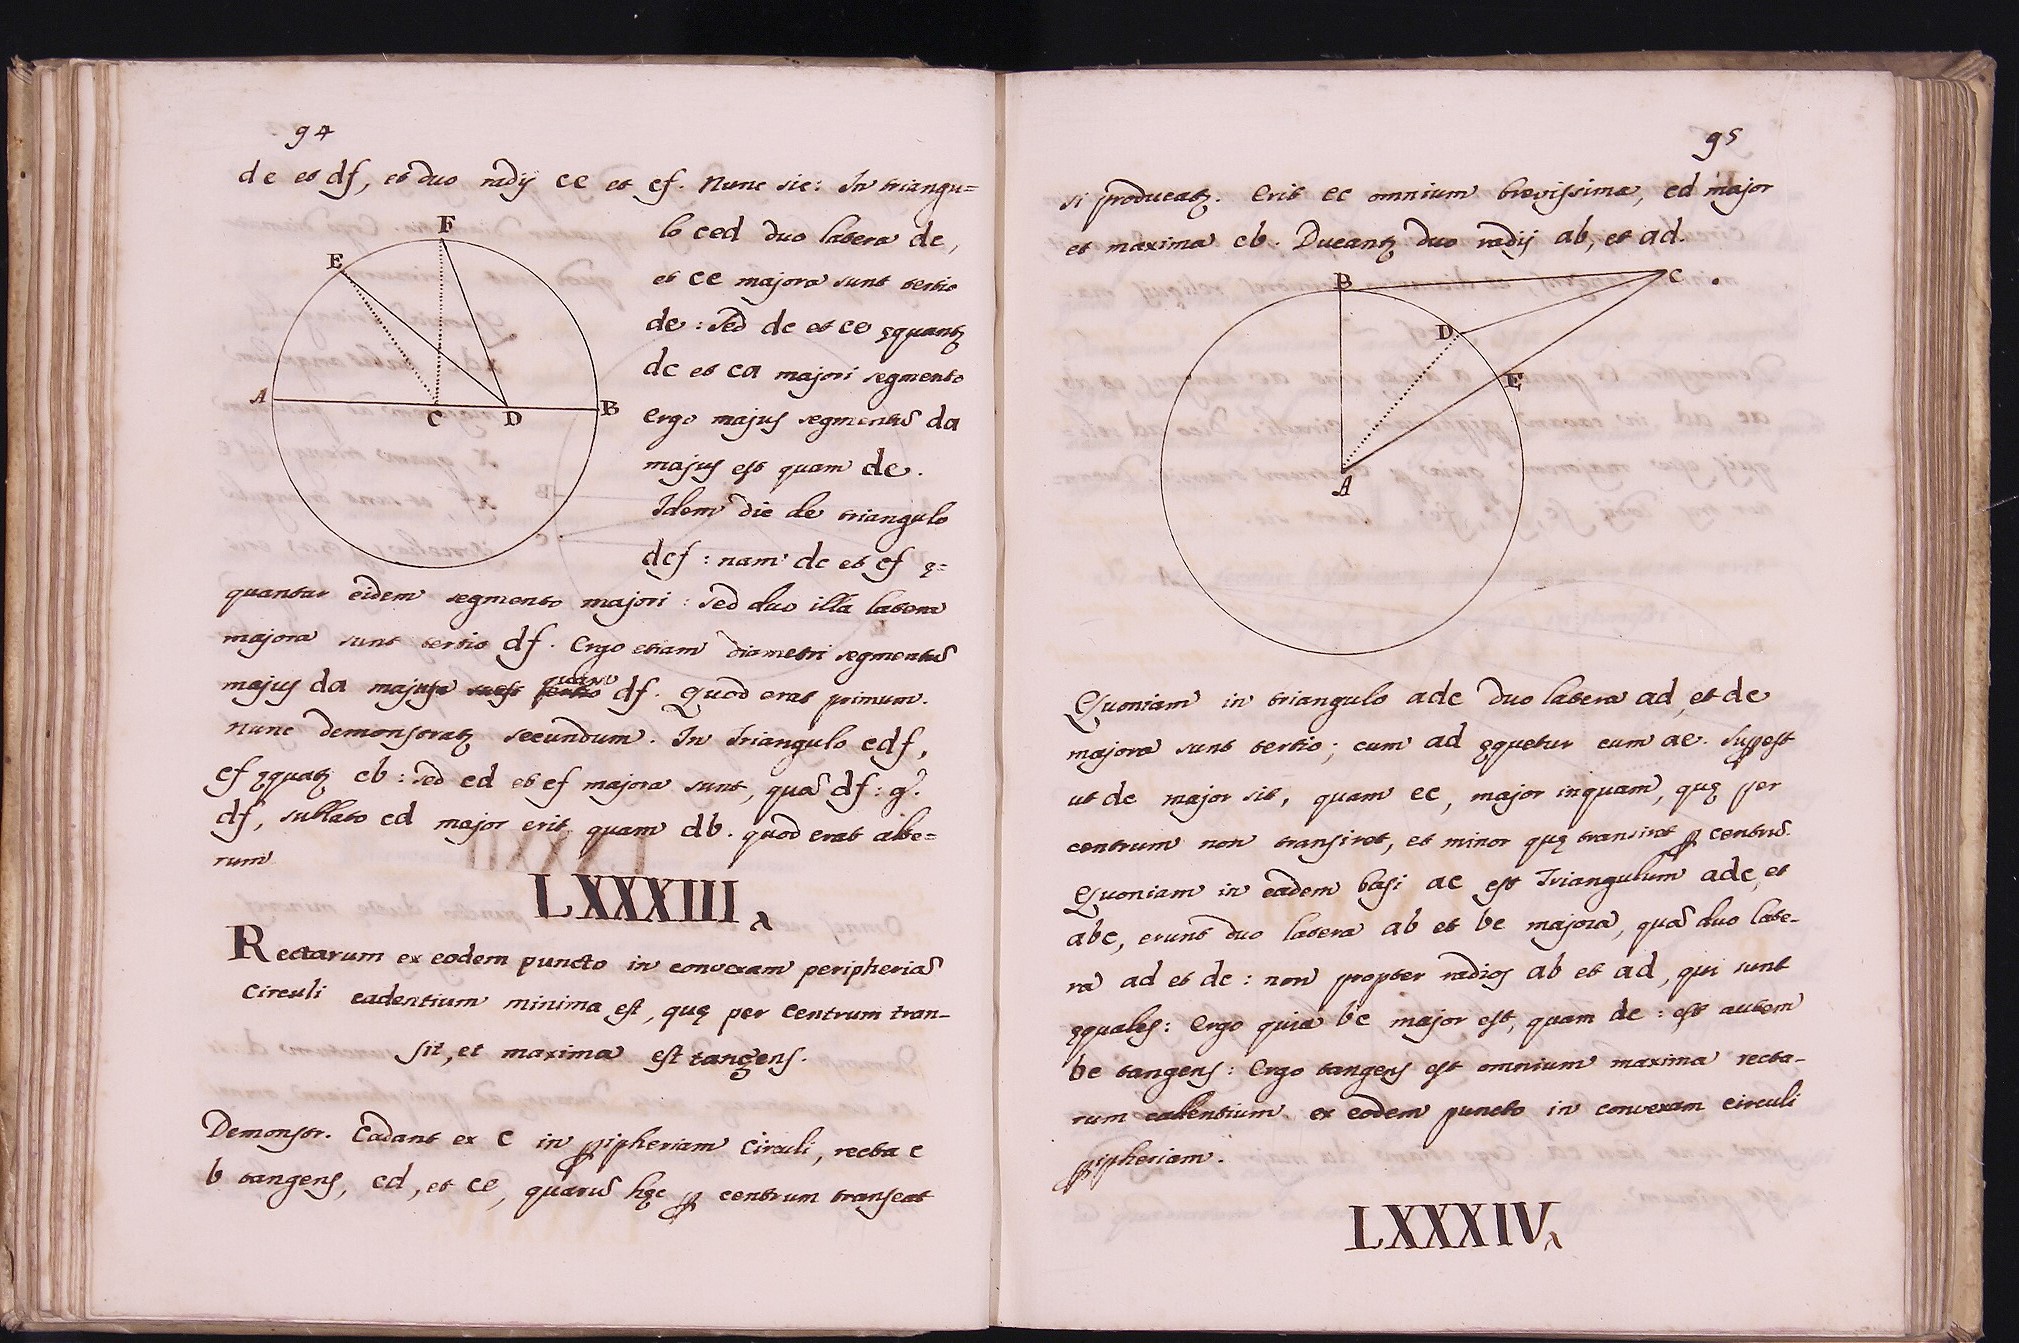 94
de et df, et duo radij ce et cf. Nunc sic: In triangu=
F
E
A
C
D
B
lo ced duo latera dc,
et ce majora sunt tertio
de: sed dc et ce ęquantꝫ
dc et ca majori segmento
ergo majus segmentũ da
majus est quam de.
Idem dic de triangulo
dcf: nam dc et cf ę=
quantur eidem segmento majori: sed duo illa latera
majora sunt tertio df. Ergo etiam diametri segmentũ
majus da majus quam df. Quod erat primum.
Nunc demonstratꝫ secundum. In Triangulo cdf,
cf ęquatꝫ cb: sed cd et cf majora sunt, quã df: g.
df, sublato cd major erit quam db. quod erat alte=
rum
LXXXIII
Rectarum ex eodem puncto in convexam peripheriã
circuli cadentium minima est, quę per centrum tran-
sit, et maxima est tangens.
Demonstr. Cadant ex C in ꝑipheriam circuli, recta c
b tangens, cd, et ce, quarũ hęc ꝑ centrum transeat
95
si producatꝫ. Erit ec omnium brevissima, cd major
et maxima cb. Ducantꝫ duo radij ab, et ad.
B
C
D
E
A
Quoniam in triangulo adc duo latera ad, et dc
majora sunt tertio; cum ad ęquetur cum ae. Suꝑest
ut dc major sit, quam ec, major inquam, quę per
centrum non transiret, et minor quę transiret ꝑ centrũ.
Quoniam in eadem basi ac est Triangulum adc, et
abc, erunt duo latera ab et bc majora, quã duo late-
ra ad et dc: non propter radios ab et ad, qui sunt
ęquales: Ergo quia bc major est, quam dc: est autem
bc tangens: Ergo tangens est omnium maxima recta-
rum cadentium ex eodem puncto in convexam circuli
ꝑipheriam.
LXXXIV